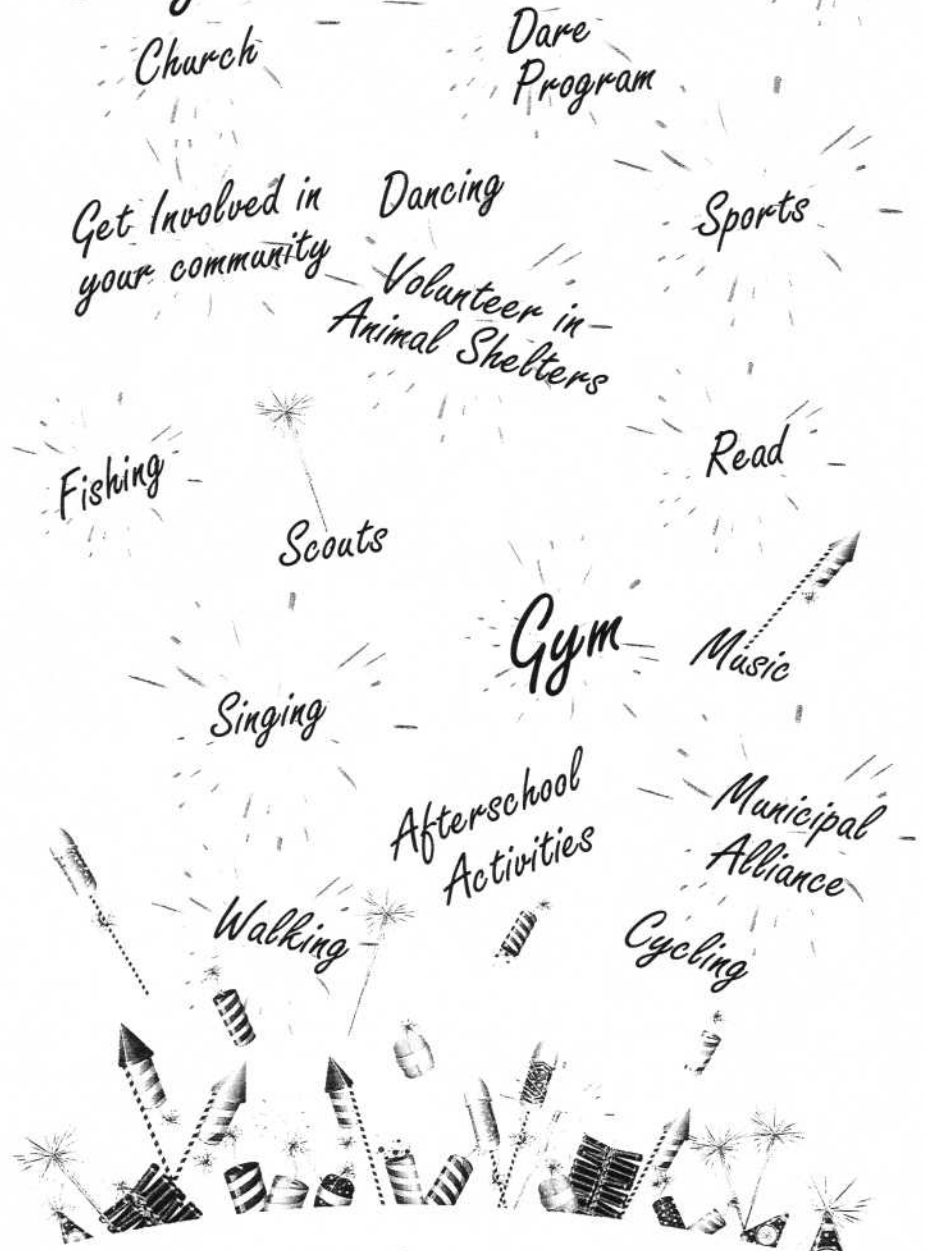 Church
Dare
Program
Get Involved in
your community
Dancing
Sports
Volunteer in
Animal Shelters
Fishing
Scouts
Read
Gym
Music
Singing
Afterschool
Activities
Municipal
Alliance
Walking
Cycling